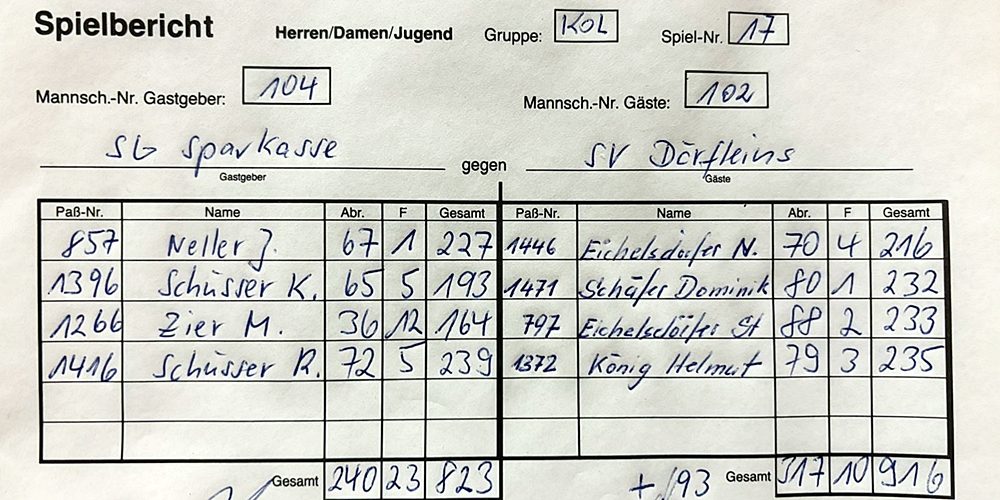 Spielbericht Herren/Damen/Jugend Gruppe: KOL Spiel-Nr. 17
Mannsch.-Nr. Gastgeber: 104 Mannsch.-Nr. Gäste: 102
SG Sparkasse gegen SV Dörfleins
Gastgeber Gäste
Paß-Nr. Name Abr. F Gesamt Paß-Nr. Name Abr. F Gesamt
857 Neller J. 67 1 227 1446 Eichelsdörfer N. 70 4 216
1396 Schüsser K. 65 5 193 1471 Schäfer Dominik 80 1 232
1266 Zier M. 36 12 164 797 Eichelsdörfer St 88 2 233
1416 Schüsser R. 72 5 239 1372 König Helmut 79 3 235
Gesamt 240 23 823 +93 Gesamt 317 10 916